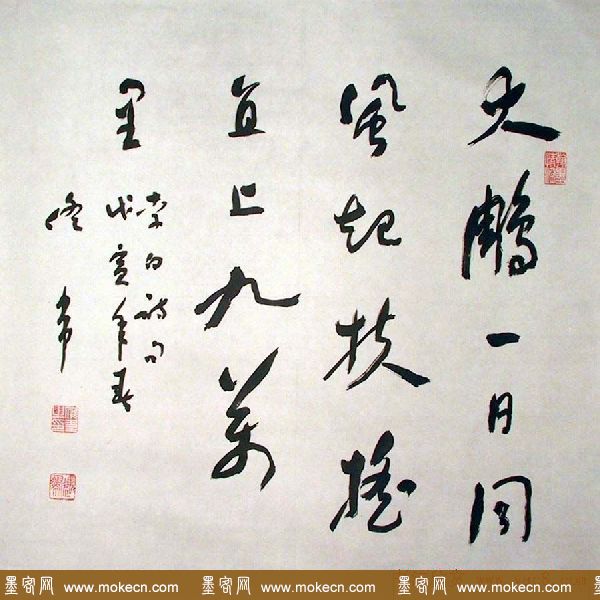 大鵬一日同
風起扶搖
直上九萬
里
李白詩句
戊寅年春
墨客网 www.mokecn.com 墨客网 www.mokecn.com 墨客网 www.mokecn.com